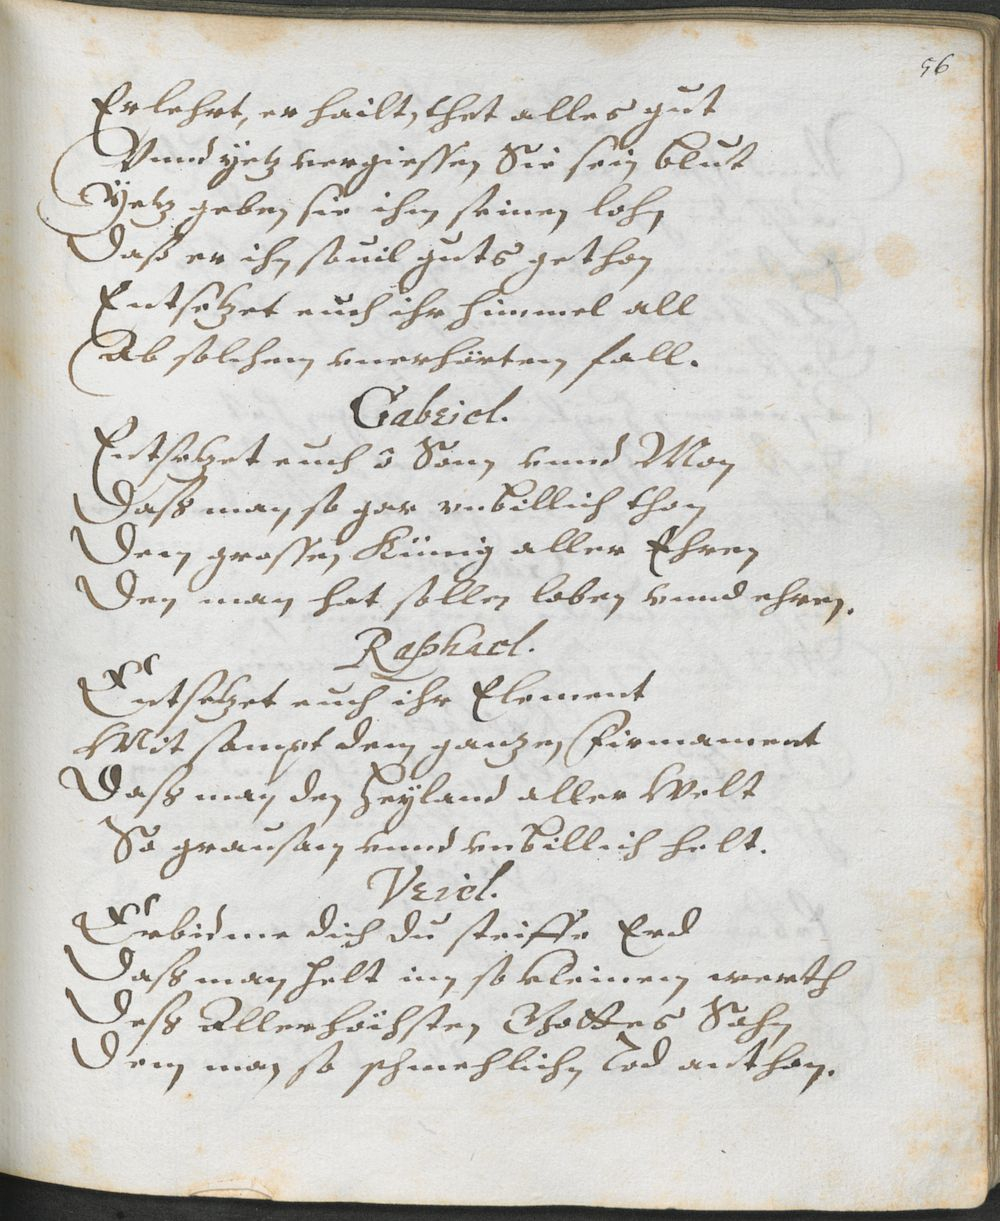 56
Er lehrt, er hailt, thet alles gut
Vnnd yetz vergiessen Sie sein blut
Yetz geben sie ihm seinen lohn
Dass er ihn souil guts gethon
Entsetzet euch ihr himmel all
Ab solchem vnerhörten fall.
Gabriel.
Entsetzet euch ô Sonn vnnd Mon
Dass man so gar vnbillich thon
Dem grossen Künig aller Ehren
Den man hat sollen loben vnnd ehren.
Raphael.
Entsetzet euch ihr Element
Mit sampt dem ganzen firmament
Dass man den Heyland aller Welt
So grausam vnnd vnbillich helt.
Vriel.
Erbidme dich du steiffe Erd
Dass man helt inn so kleinem werth
Dess Allerhöchsten Gottes Sohn
Dem man so schmehlichn Tod anthon.